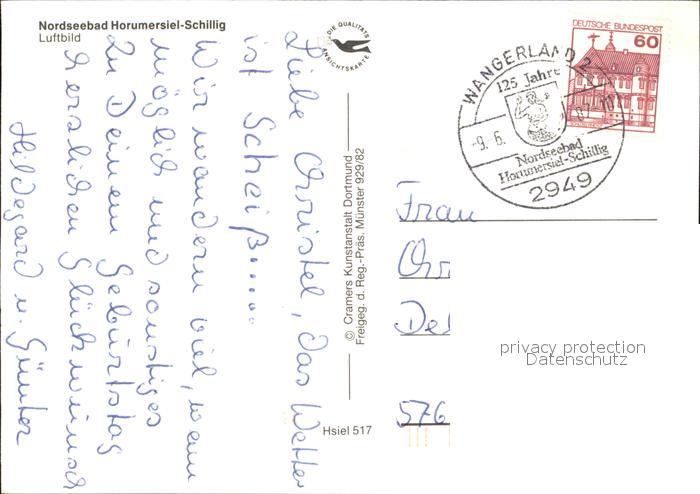 Nordseebad Horumersiel-Schillig
Luftbild
DIE QUALITÄTS
ANSICHTSKARTE
Liebe Christel, das Wetter
ist Scheiß.....
Wir wandern viel, wenn
möglich und sonstiges
Zu Deinem Geburtstag
herzlichen Glückwünsch
Hildegard u. Günter
© Cramers Kunstanstalt Dortmund
Freigeg. d. Reg.-Präs. Münster 929/82
Hsiel 517
DEUTSCHE BUNDESPOST
60
WANGERLAND 2
125 Jahre
-9.6.
Nordseebad
Horumersiel-Schillig
2949
Frau
576
privacy protection
Datenschutz